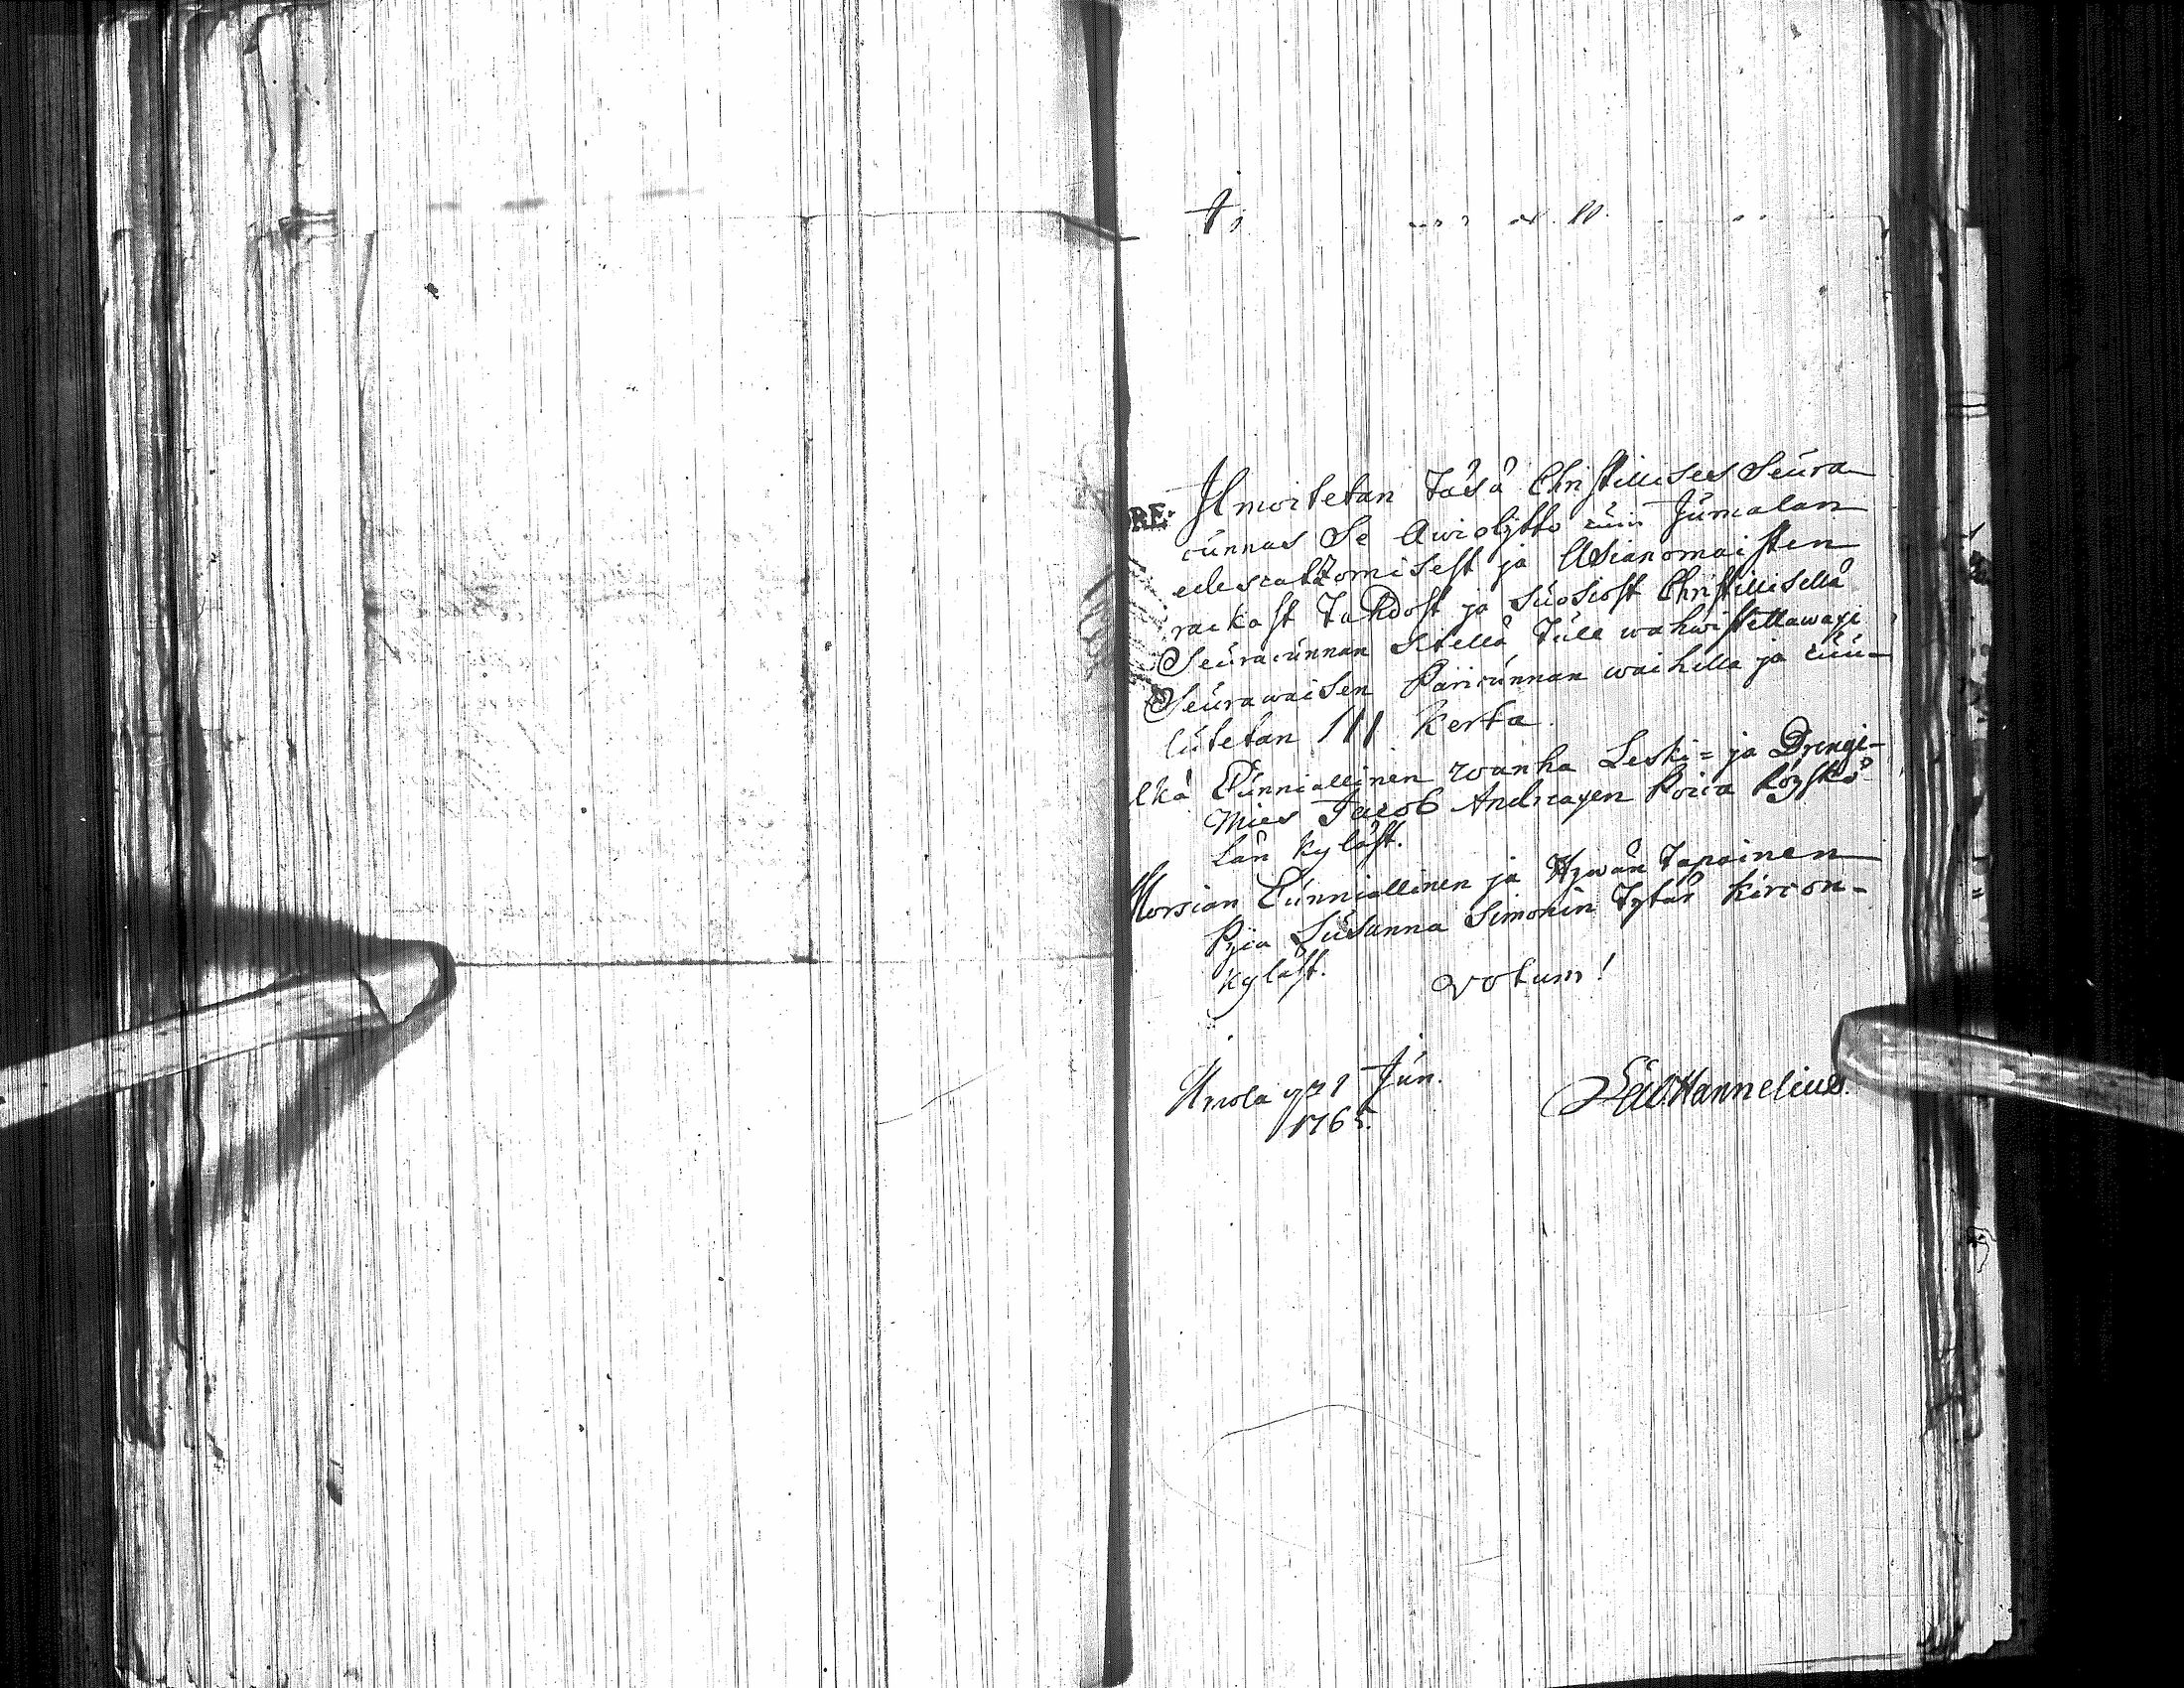 RE:
Ilmoitetan Täsä Christillises Seura
cunnas Se Awioljtto cuin Jumalan
edescatzomisest ja Asianomaisten
rackast Tahdost ja suosiost Christillisellä
Seuracunnan Stellä Tule wahwistettawaxi
Seurawaisen Pariscunnan waihella ja cuu-
lutetan III Kerta
lkä Cunniallinen wanha Leski= ja Drengi-
Mies Jacob Andreaxen Poica Röyskö-
län Kyläst.
Morsian Cunniallinen ja Hywän Tapainen
Pjia Susanna Simonin Tytär Kircon-
Kyläst.
Votum!
Jun.
1765.
Hannelius.